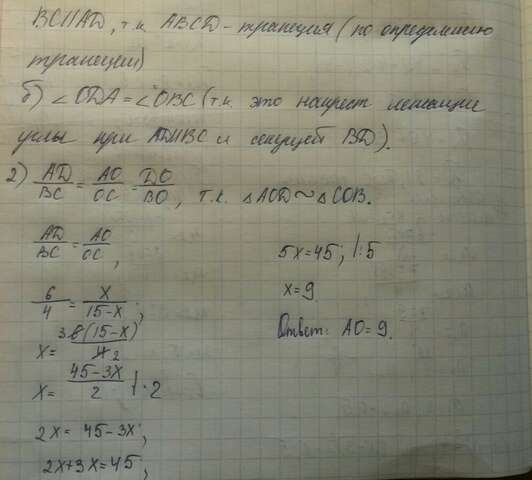 BC||AD, т.к. ABCD - трапеция (по определению
трапеции)
б) ∠ODA = ∠OBC (т.к. это накрест лежащие
углы при AD||BC и секущей BD).
2) AD/BC = AO/OC = DO/BO, т.к. △AOD ~ △COB.
AD/BC = AO/OC,
6/4 = x/(15-x);
x = 3 6(15-x)/4 2
x = (45-3x)/2 |·2
2x = 45-3x;
2x+3x=45;
5x=45; |:5
x=9
Ответ: AO=9.